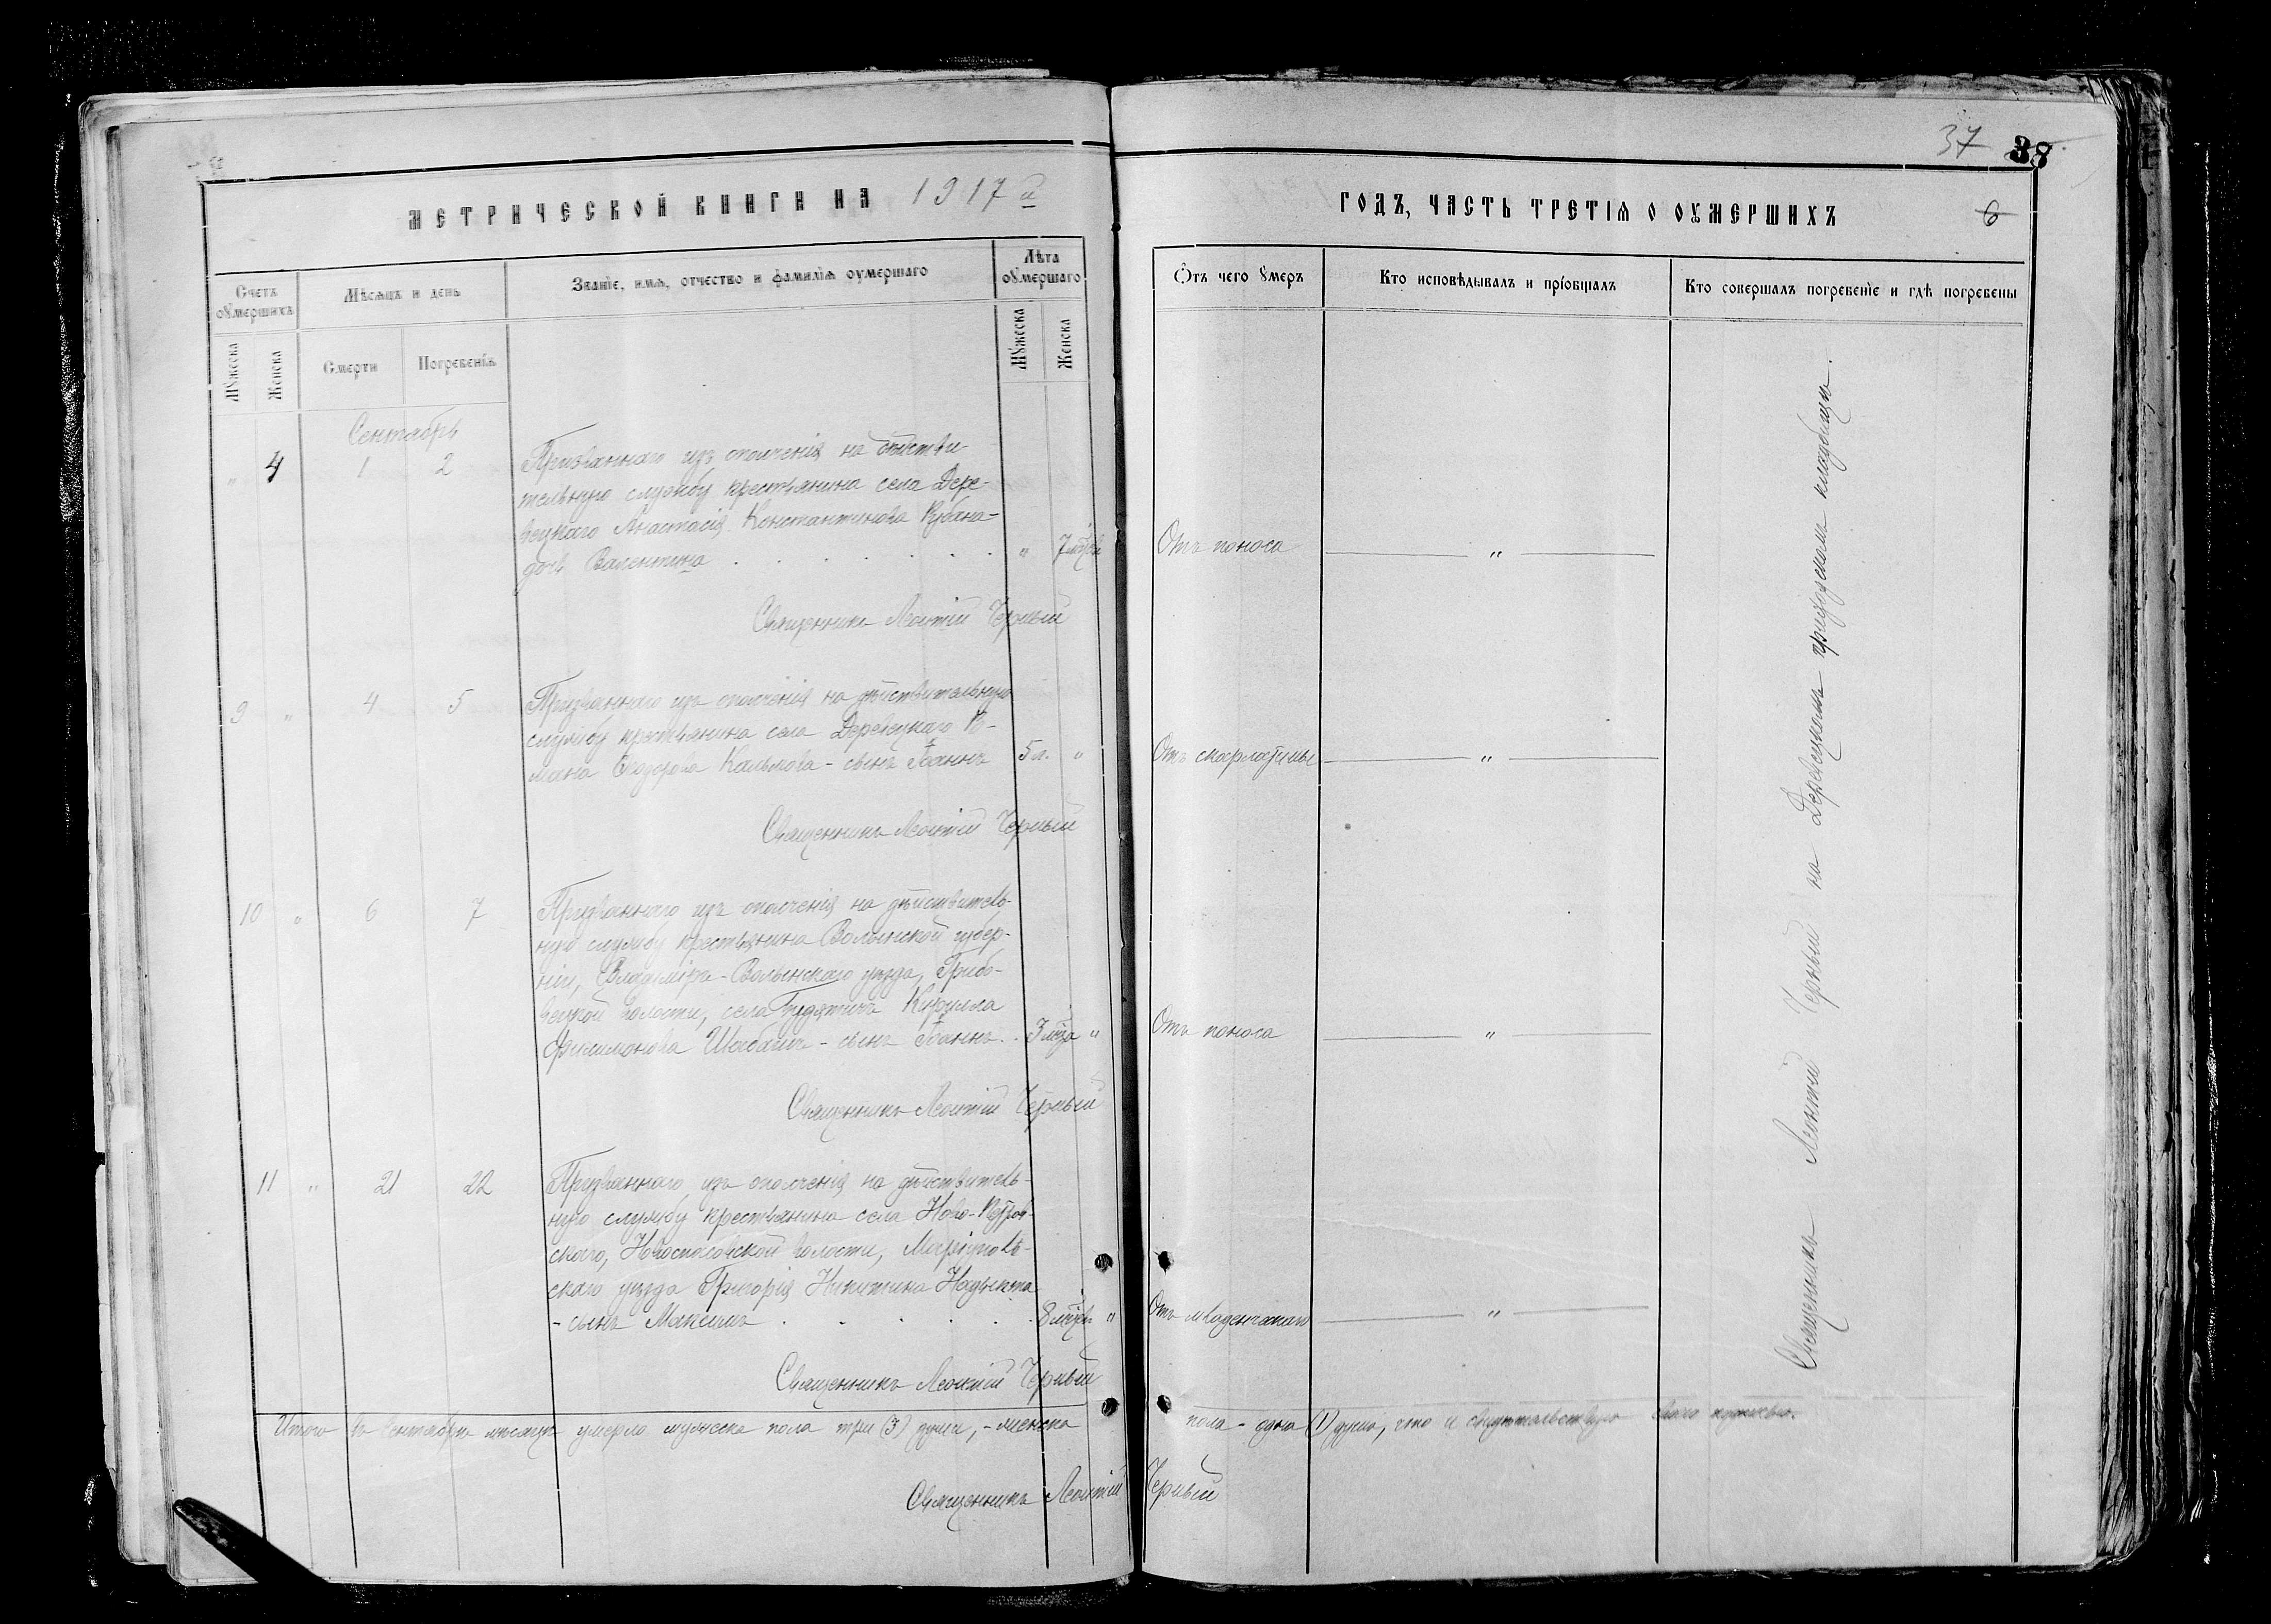 МЕТРИЧЕСКОЙ КНИГИ НА 1917й
Счетъ оумершихъ
Мѣсяцъ и день
Званіе, имя, отчество и фамилія оумершаго
Лѣта оумершаго
Мужеска
Женска
Смерти
Погребенія
Мужеска
Женска
Сентябрь
„ 4 1 2
Призваннаго изъ ополченія на дѣйстви-
тельную службу крестьянина села Дере-
вецкаго Анастасія Константинова
дочь Валентина . . . . . . „ 7 мѣс.
Священникъ Леонтій Черный
9 „ 4 5
Призваннаго изъ ополченія на дѣйствительную
службу крестьянина села Деревецкаго Ро-
мана Ѳеодорова Кальмова - сынъ Іоаннъ 5 л. „
Священникъ Леонтій Черный
10 „ 6 7
Призваннаго изъ ополченія на дѣйствитель-
ную службу крестьянина Волынской губер-
ніи, Владиміръ-Волынскаго уѣзда, Грибо-
вецкой волости, села Кирилла
Филимонова - сынъ Іоаннъ . 3 мѣс. „
Священникъ Леонтій Черный
11 „ 21 22
Призваннаго изъ ополченія на дѣйствитель-
ную службу крестьянина села Ново-Петров-
скаго, Новоспасовской волости, Маріуполь-
скаго уѣзда Григорія Никитина
- сынъ Максимъ . . . . . . 8 мѣс. „
Священникъ Леонтій Черный
Итого въ Сентябрѣ мѣсяцѣ умерло мужеска пола три (3) души, - женска
Священникъ Леонтій
37 38
ГОДЪ, ЧАСТЬ ТРЕТІЯ О ОУМЕРШИХЪ 6
Отъ чего умеръ
Кто исповѣдывалъ и пріобщалъ
Кто совершалъ погребеніе и гдѣ погребены
Отъ поноса „
Отъ скарлатины „
Отъ поноса „
Отъ младенческой „
Священникъ Леонтій Черный на Деревецкомъ приходскомъ кладбищѣ.
пола - одна (1) душа, что и свидѣтельствую своею подписью.
Черный